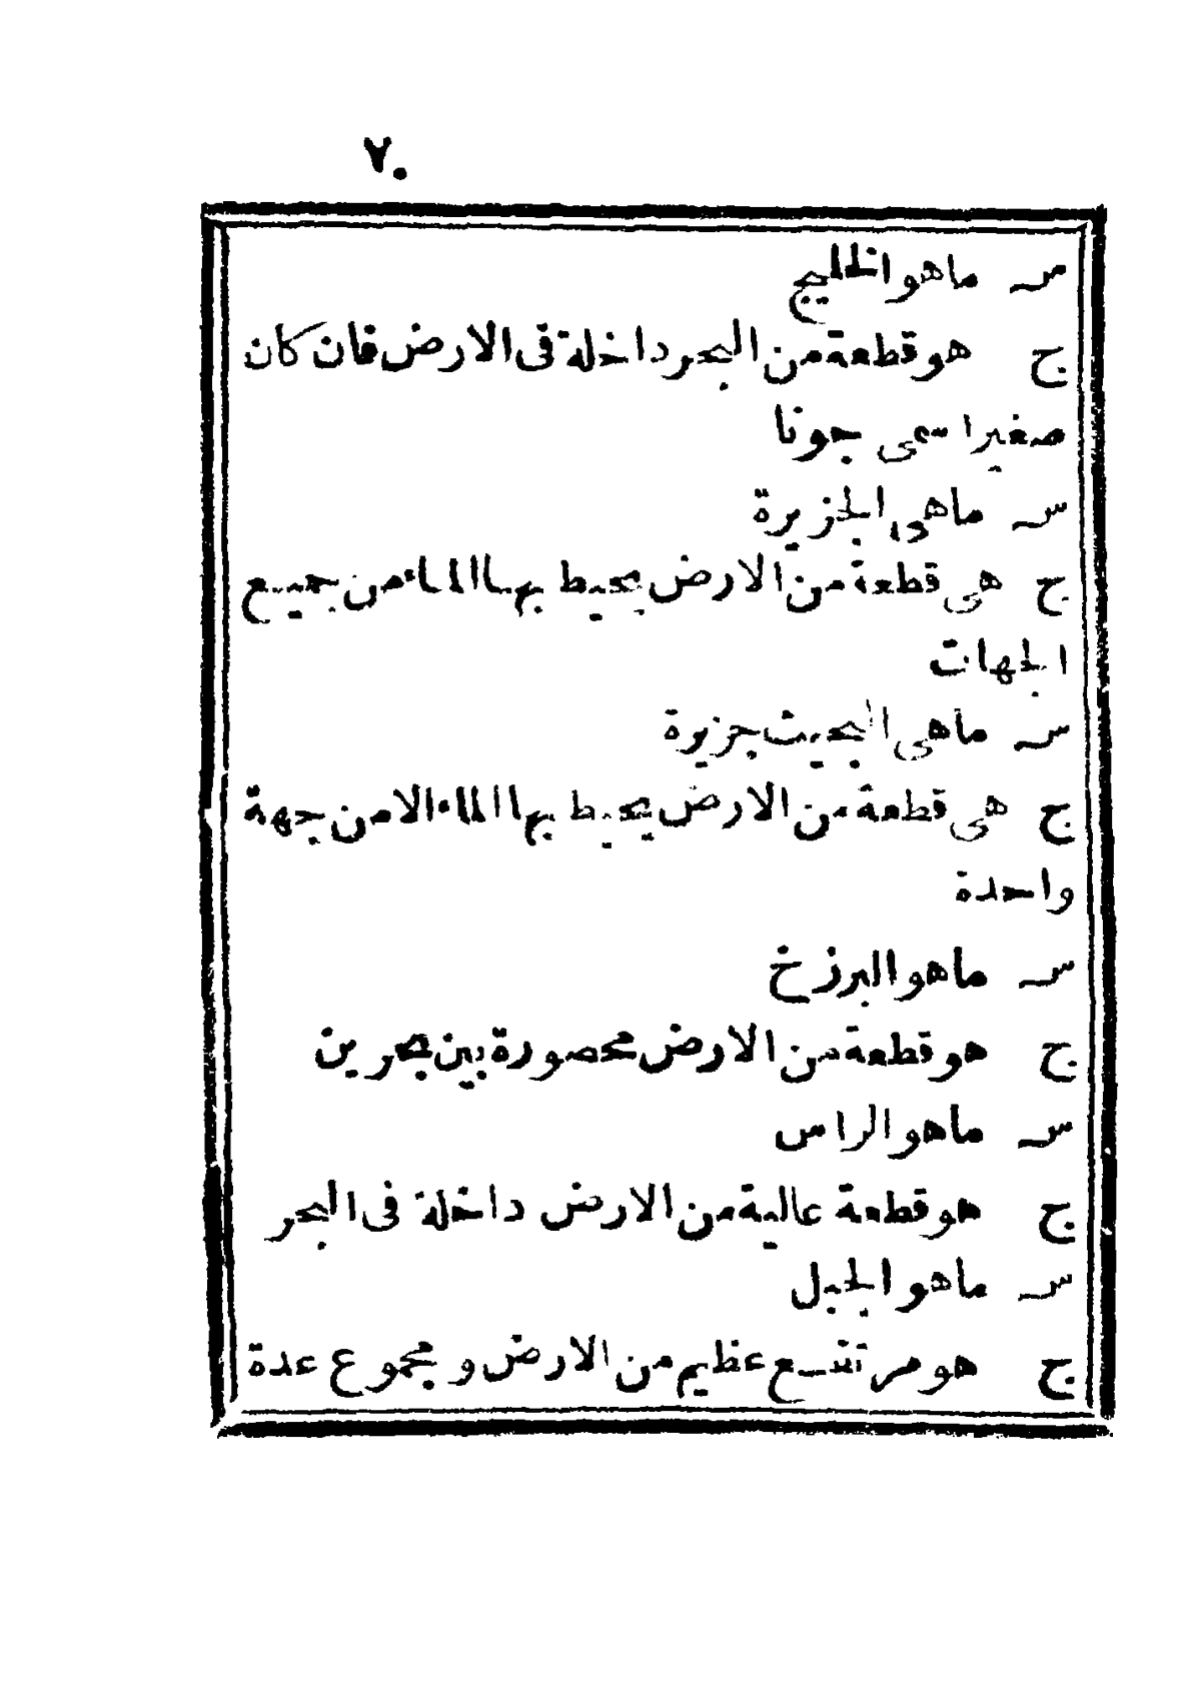 ٧٠
س ماهو الخليج
ج هو قطعة من البحر داخلة فى الارض فان كان
صغيرا سمى جونا
س ماهى الجزيرة
ج هى قطعة من الارض يحيط بها الماء من جميع
الجهات
س ماهى البحيث جزيرة
ج هى قطعة من الارض يحيط بها الماء الا من جهة
واحدة
س ماهو البرزخ
ج هو قطعة من الارض محصورة بين بحرين
س ماهو الراس
ج هو قطعة عالية من الارض داخلة فى البحر
س ماهو الجبل
ج هو مرتفع عظيم من الارض ومجموع عدة